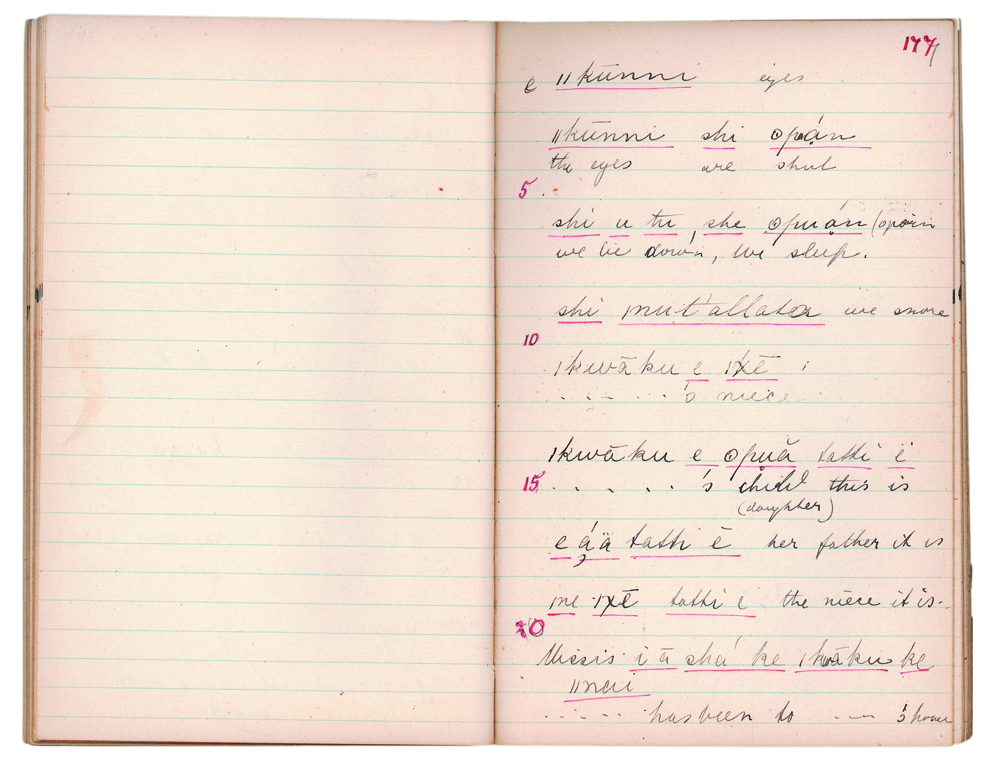 177
e ǁkūnni eyes
ǁkūnni shi ʘpuán
the eyes are shut
5
shi u tu, she ʘpuán (opoin
we lie down, we sleep.
shi mut'allata we snore
10
ǀkwāku e ǀxē
. . . . . 's niece
ǀkwāku e ʘpuă tatti ē
15 . . . . . 's child this is
(daughter)
e áä tatti ē her father it is
me ǀxē tatti e the niece it is.
20
Missis i ā shá ke ǀkwāku ke
ǁnei
. . . . . has been to — — 's house